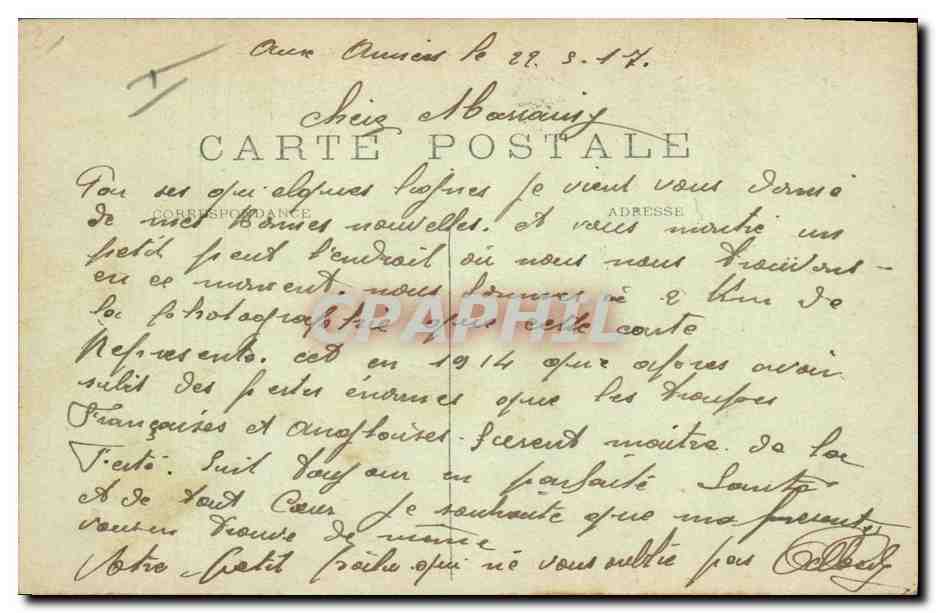 Aux Armées le 22. 3. 17.
Cheiz Marraine
CARTE POSTALE
Par ses quelques lignes je vient vous donné
CORRESPONDANCE
ADRESSE
de mes bonnes nouvelles. et vous montré un
petit peut l'endroit où nous nous trouvons
en ce moment. nous sommes à 2 Km de
la photographie que cette carte
CPAPHIL
Représente. cet en 1914 que apres avoir
subit des pertes énormes que les troupes
Françaises et Anglaises furent maitre de la
Ferté. Suit toujour en parfaite Santé
et de tout Cœur je souhaite que ma presente
vous en trouve de même
Votre petit poilu qui ne vous oublie pas